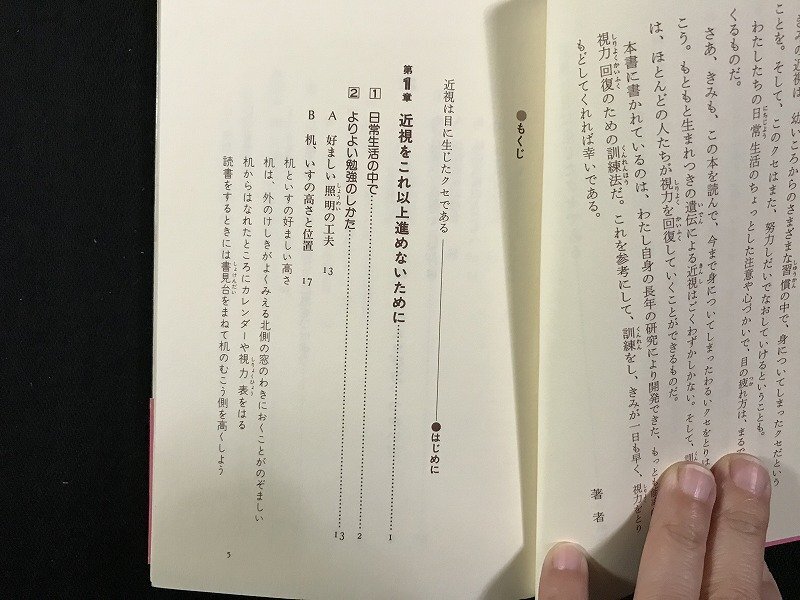 きみの近視は、幼いころからのさまざまな習慣の中で、身についてしまったクセだという
ことを。そして、このクセはまた、努力しだいでなおしていけるということも。
わたしたちの日常生活のちょっとした注意や心づかいで、目の疲れ方は、まるで
くるものだ。
さあ、きみも、この本を読んで、今まで身についてしまったわるいクセをとりは
こう。もともと生まれつきの遺伝による近視はごくわずかしかない。そして、訓
は、ほとんどの人たちが視力を回復していくことができるものだ。
本書に書かれているのは、わたし自身の長年の研究により開発できた、もっとも
視力回復のための訓練法だ。これを参考にして、訓練をし、きみが一日も早く、視力をとり
もどしてくれれば幸いである。
著者
●もくじ
近視は目に生じたクセである――●はじめに
第1章 近視をこれ以上進めないために……1
1 日常生活の中で……2
2 よりよい勉強のしかた……13
A 好ましい照明の工夫 13
B 机、いすの高さと位置 17
机といすの好ましい高さ
机は、外のけしきがよくみえる北側の窓のわきにおくことがのぞましい
机からはなれたところにカレンダーや視力表をはる
読書をするときには書見台をまねて机のむこう側を高くしよう
5